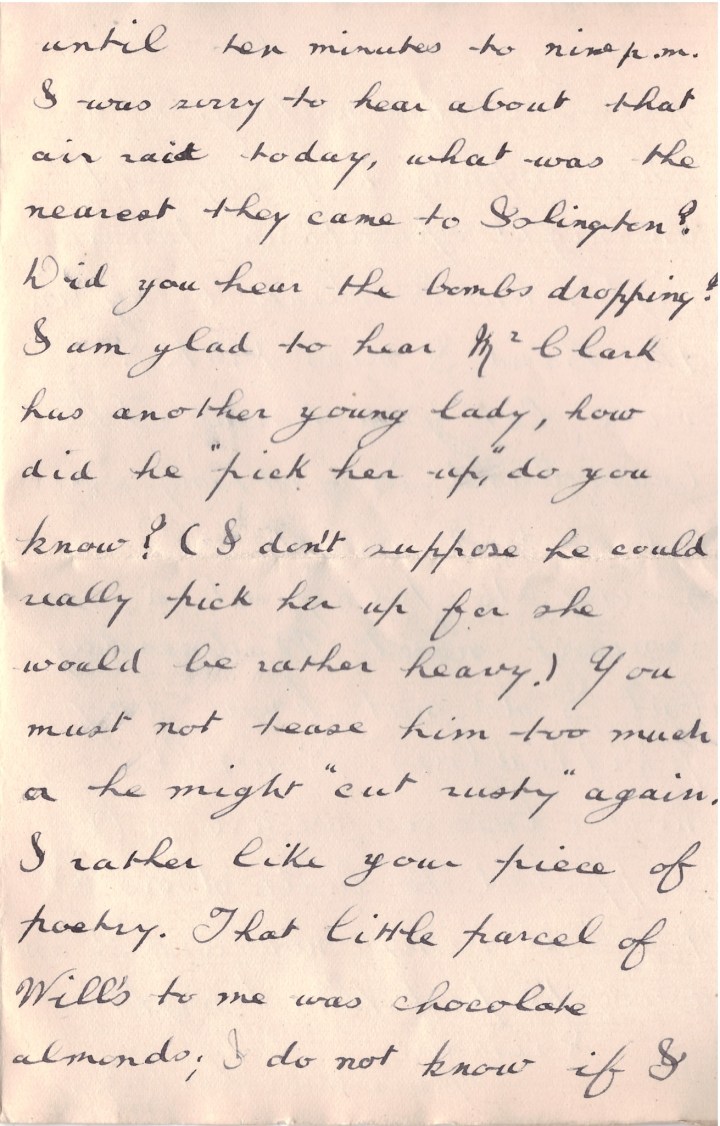 until ten minutes to nine p.m.
I was sorry to hear about that
air raid today, what was the
nearest they came to Islington?
Did you hear the bombs dropping?
I am glad to hear Mr Clark
has another young lady, how
did he "pick her up," do you
know? (I don't suppose he could
really pick her up for she
would be rather heavy.) You
must not tease him too much
or he might "cut rusty" again.
I rather like your piece of
poetry. That little parcel of
Will's to me was chocolate
almonds; I do not know if I